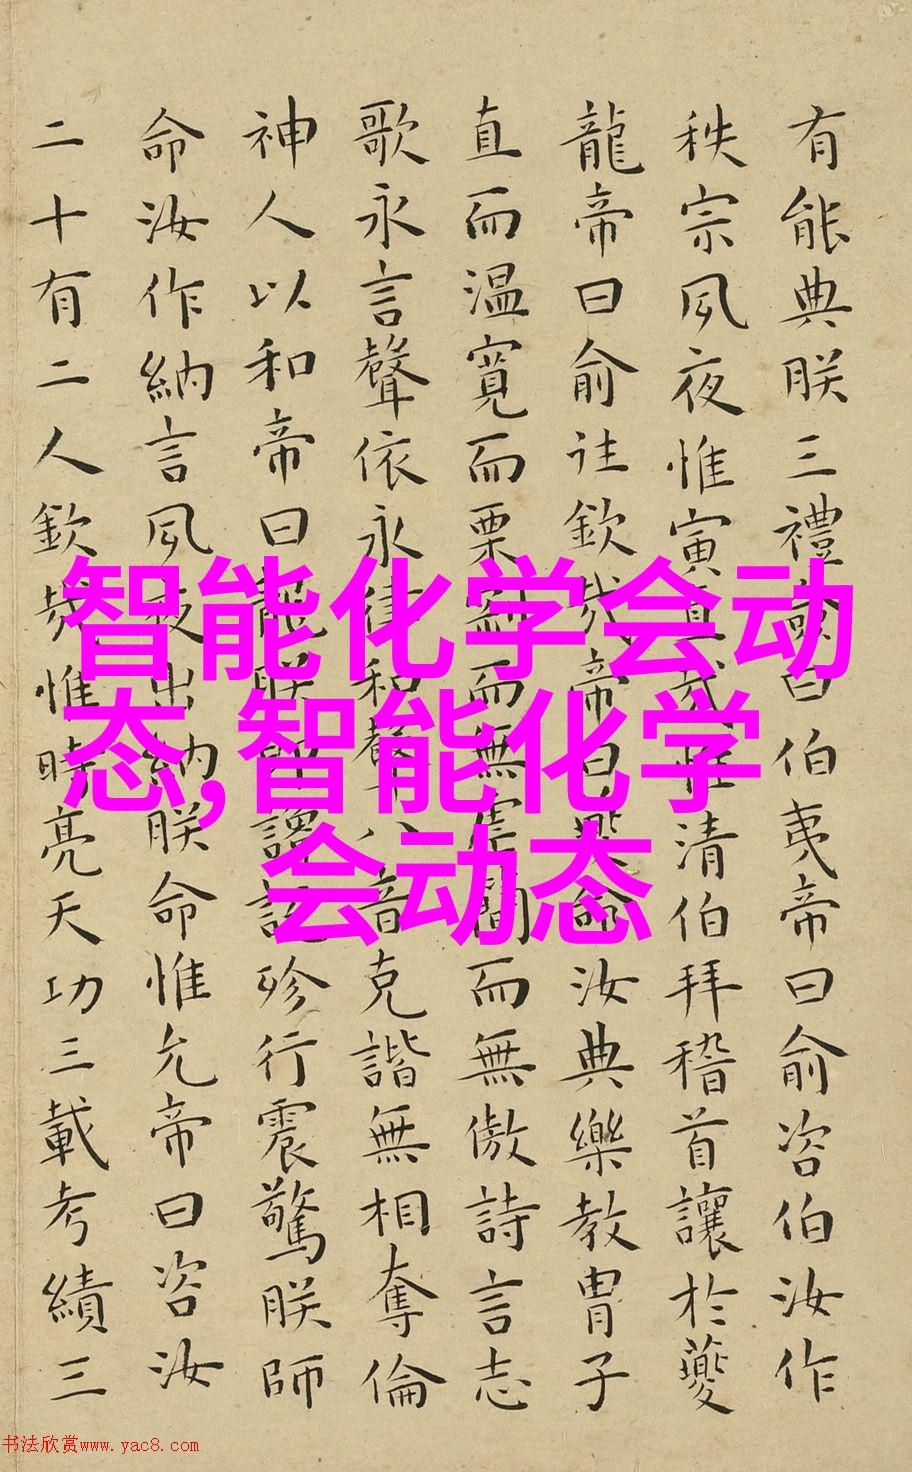 有能典朕三禮曰伯夷帝曰俞咨伯汝作
秩宗夙夜惟寅直哉惟清伯拜稽首讓於夔
龍帝曰俞往欽哉帝曰夔命汝典樂教冑子
直而温寬而栗剛而無虐簡而無傲詩言志
歌永言聲依永律和聲八音克諧無相奪倫
神人以和帝曰龍朕讒說殄行震驚朕師
命汝作納言夙夜出納朕命惟允帝曰咨汝
二十有二人欽哉惟時亮天功三載考績三
智能化学会动
态,智能化学
会动态
书法欣赏www.yac8.com